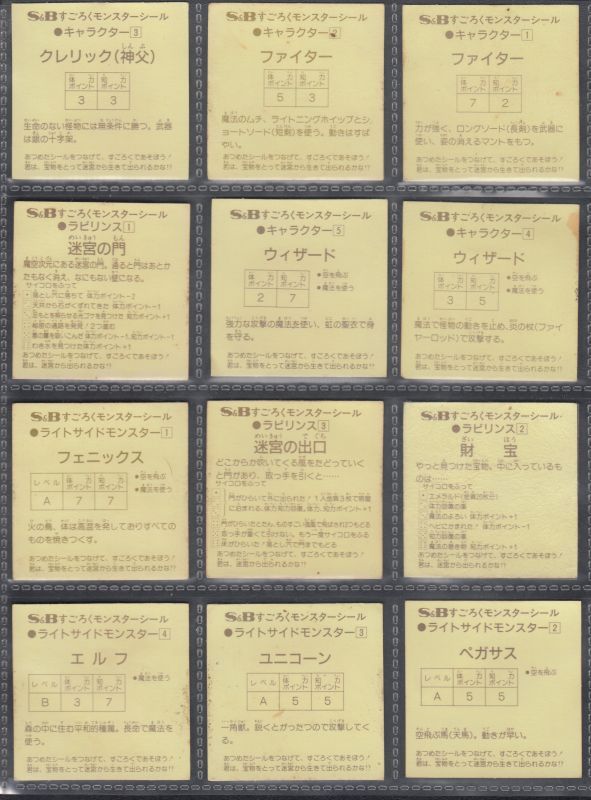 S&Bすごろくモンスターシール
●キャラクター3
クレリック(神父)
体力ポイント 知力ポイント
3 3
生命のない怪物には無条件に勝つ。武器
は銀の十字架。
あつめたシールをつなげて、すごろくであそぼう!
君は、宝物をとって迷宮から生きて出られるかな!?
S&Bすごろくモンスターシール
●キャラクター2
ファイター
体力ポイント 知力ポイント
5 3
魔法のムチ、ライトニングホイップとシ
ョートソード(短剣)を使う。動きはすば
やい。
あつめたシールをつなげて、すごろくであそぼう!
君は、宝物をとって迷宮から生きて出られるかな!?
S&Bすごろくモンスターシール
●キャラクター1
ファイター
体力ポイント 知力ポイント
7 2
力が強く、ロングソード(長剣)を武器に
使い、姿の消えるマントをもつ。
あつめたシールをつなげて、すごろくであそぼう!
君は、宝物をとって迷宮から生きて出られるかな!?
S&Bすごろくモンスターシール
●ラビリンス1
めいきゅう もん
迷宮の門
魔空次元にある迷宮の門。通ると門はあとか
たもなく消え、なにもない壁になる。
サイコロをふって
落とし穴に落ちて 体力ポイント-2
天井から石がくずれてきた 体力ポイント-1
足もとを照らせる光ゴケを見つけた 知力ポイント+1
秘密の通路を発見!2つ進む
わき水を見つけた体力ポイント+1
あつめたシールをつなげて、すごろくであそぼう!
君は、宝物をとって迷宮から生きて出られるかな!?
S&Bすごろくモンスターシール
●キャラクター5
ウィザード
体力ポイント 知力ポイント
2 7
●空を飛ぶ
●魔法を使う
強力な攻撃の魔法を使い、虹の聖衣で身
を守る。
あつめたシールをつなげて、すごろくであそぼう!
君は、宝物をとって迷宮から生きて出られるかな!?
S&Bすごろくモンスターシール
●キャラクター4
ウィザード
体力ポイント 知力ポイント
3 5
●空を飛ぶ
●魔法を使う
魔法で怪物の動きを止め、炎の杖(ファイ
ヤーロッド)で攻撃する。
あつめたシールをつなげて、すごろくであそぼう!
君は、宝物をとって迷宮から生きて出られるかな!?
S&Bすごろくモンスターシール
●ライトサイドモンスター1
フェニックス
レベル 体力ポイント 知力ポイント
A 7 7
●空を飛ぶ
●魔法を使う
火の鳥、体は高温を発しておりすべての
ものを焼きつくす。
あつめたシールをつなげて、すごろくであそぼう!
君は、宝物をとって迷宮から生きて出られるかな!?
S&Bすごろくモンスターシール
●ラビリンス3
めいきゅう でぐち
迷宮の出口
どこからか吹いてくる風をたどっていく
と門があり、取っ手を引くと……
サイコロをふって
あつめたシールをつなげて、すごろくであそぼう!
君は、宝物をとって迷宮から生きて出られるかな!?
S&Bすごろくモンスターシール
●ラビリンス2
ざい ほう
財宝
やっと見つけた宝物、中に入っているもの
は……
サイコロをふって
魔法のよろい 体力ポイント+1
あつめたシールをつなげて、すごろくであそぼう!
君は、宝物をとって迷宮から生きて出られるかな!?
S&Bすごろくモンスターシール
●ライトサイドモンスター4
エルフ
レベル 体力ポイント 知力ポイント
B 3 7
●魔法を使う
森の中に住む平和的種属。長命で魔法を
使う。
あつめたシールをつなげて、すごろくであそぼう!
君は、宝物をとって迷宮から生きて出られるかな!?
S&Bすごろくモンスターシール
●ライトサイドモンスター3
ユニコーン
レベル 体力ポイント 知力ポイント
A 5 5
一角獣。鋭くとがったつので攻撃してく
る。
あつめたシールをつなげて、すごろくであそぼう!
君は、宝物をとって迷宮から生きて出られるかな!?
S&Bすごろくモンスターシール
●ライトサイドモンスター2
ペガサス
レベル 体力ポイント 知力ポイント
A 5 5
●空を飛ぶ
空飛ぶ馬(天馬)。動きが早い。
あつめたシールをつなげて、すごろくであそぼう!
君は、宝物をとって迷宮から生きて出られるかな!?